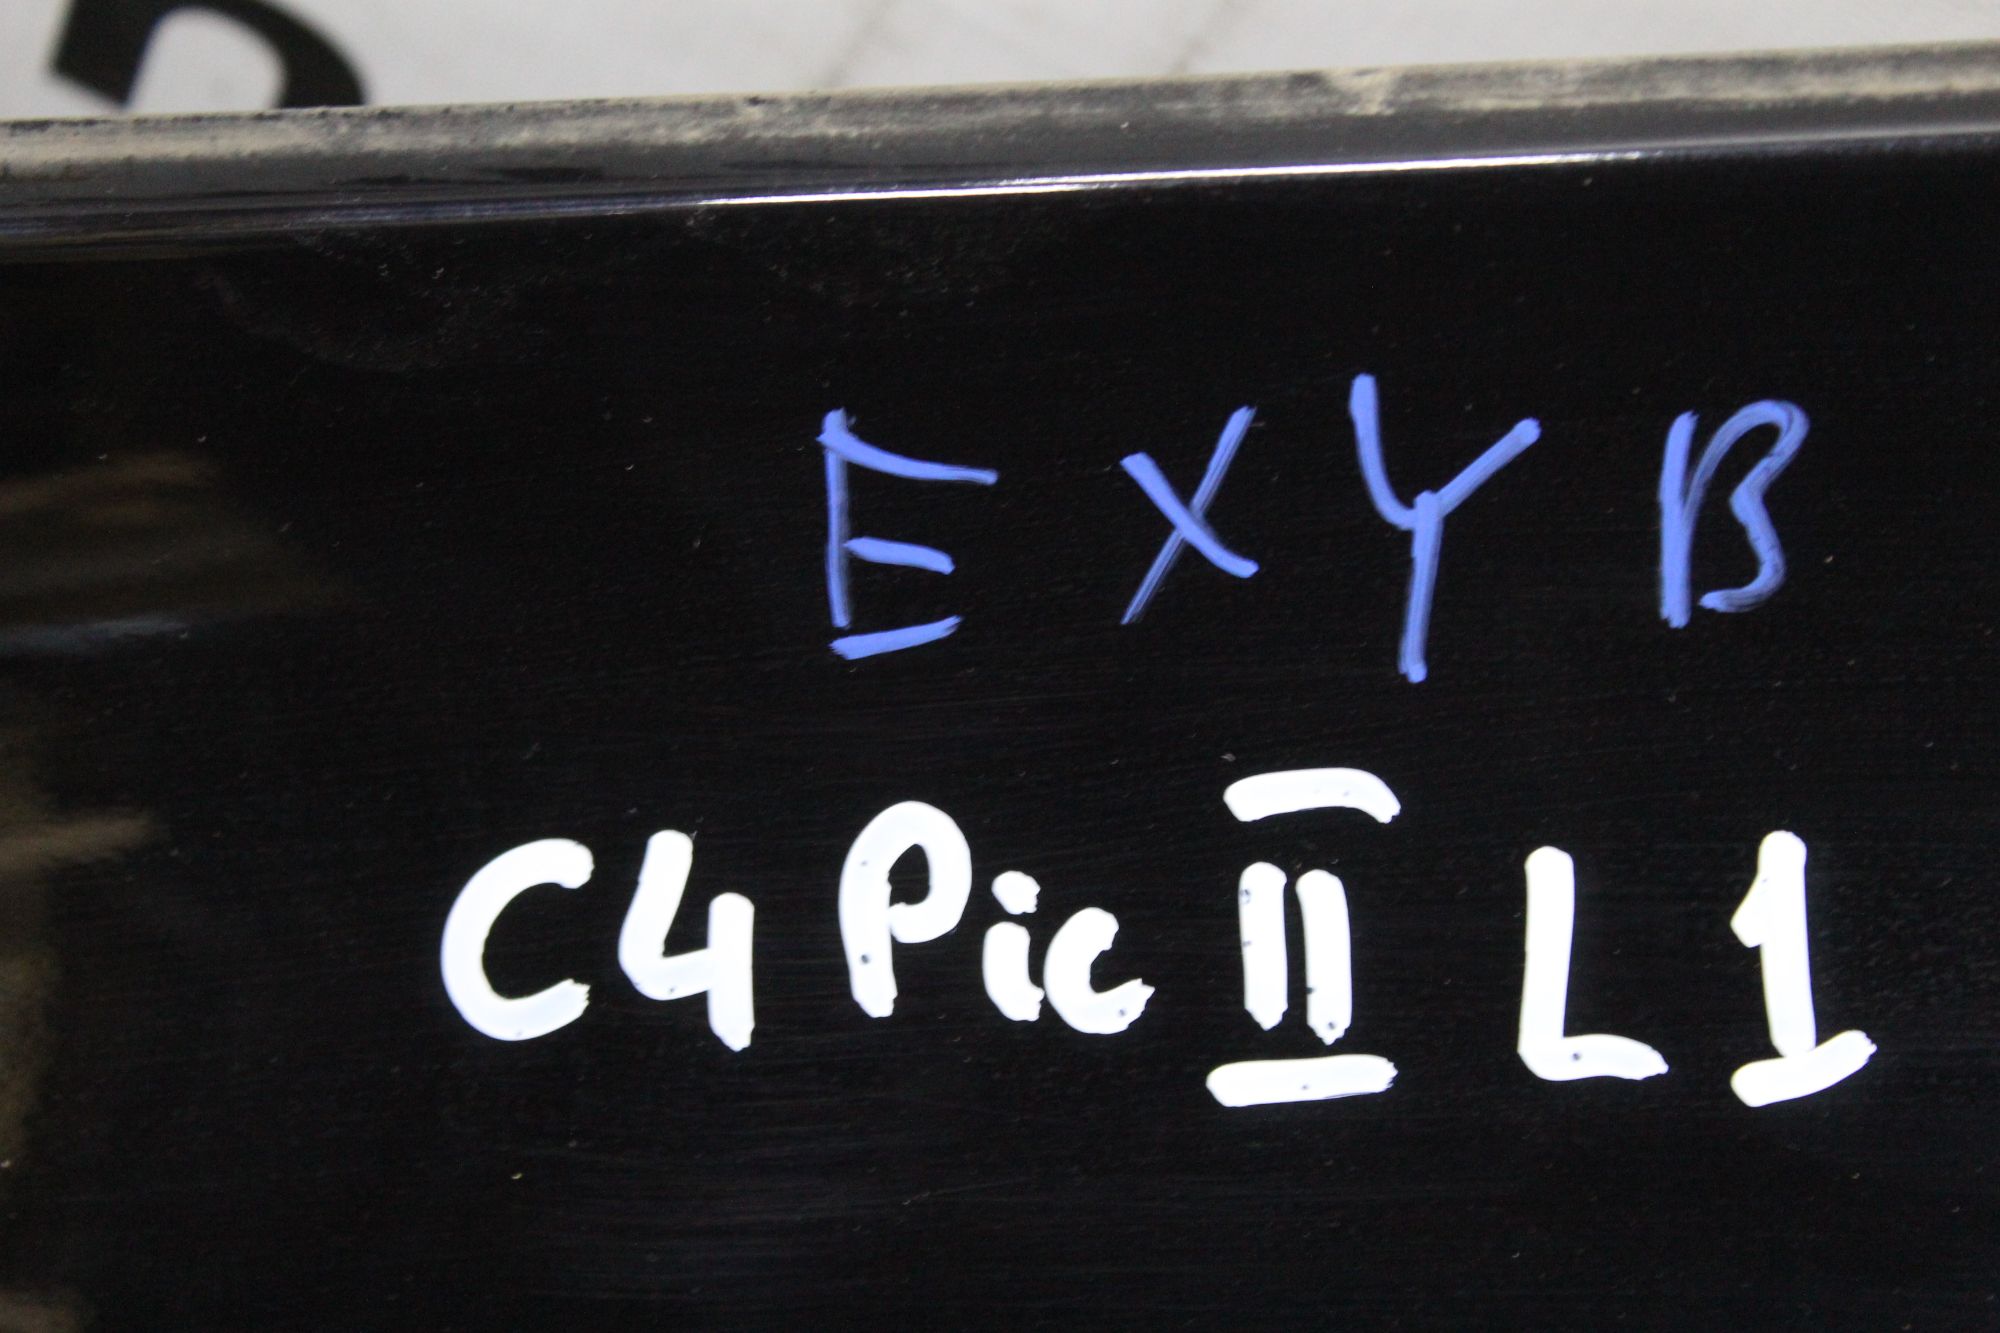 EXYB
C4 Pic II L1